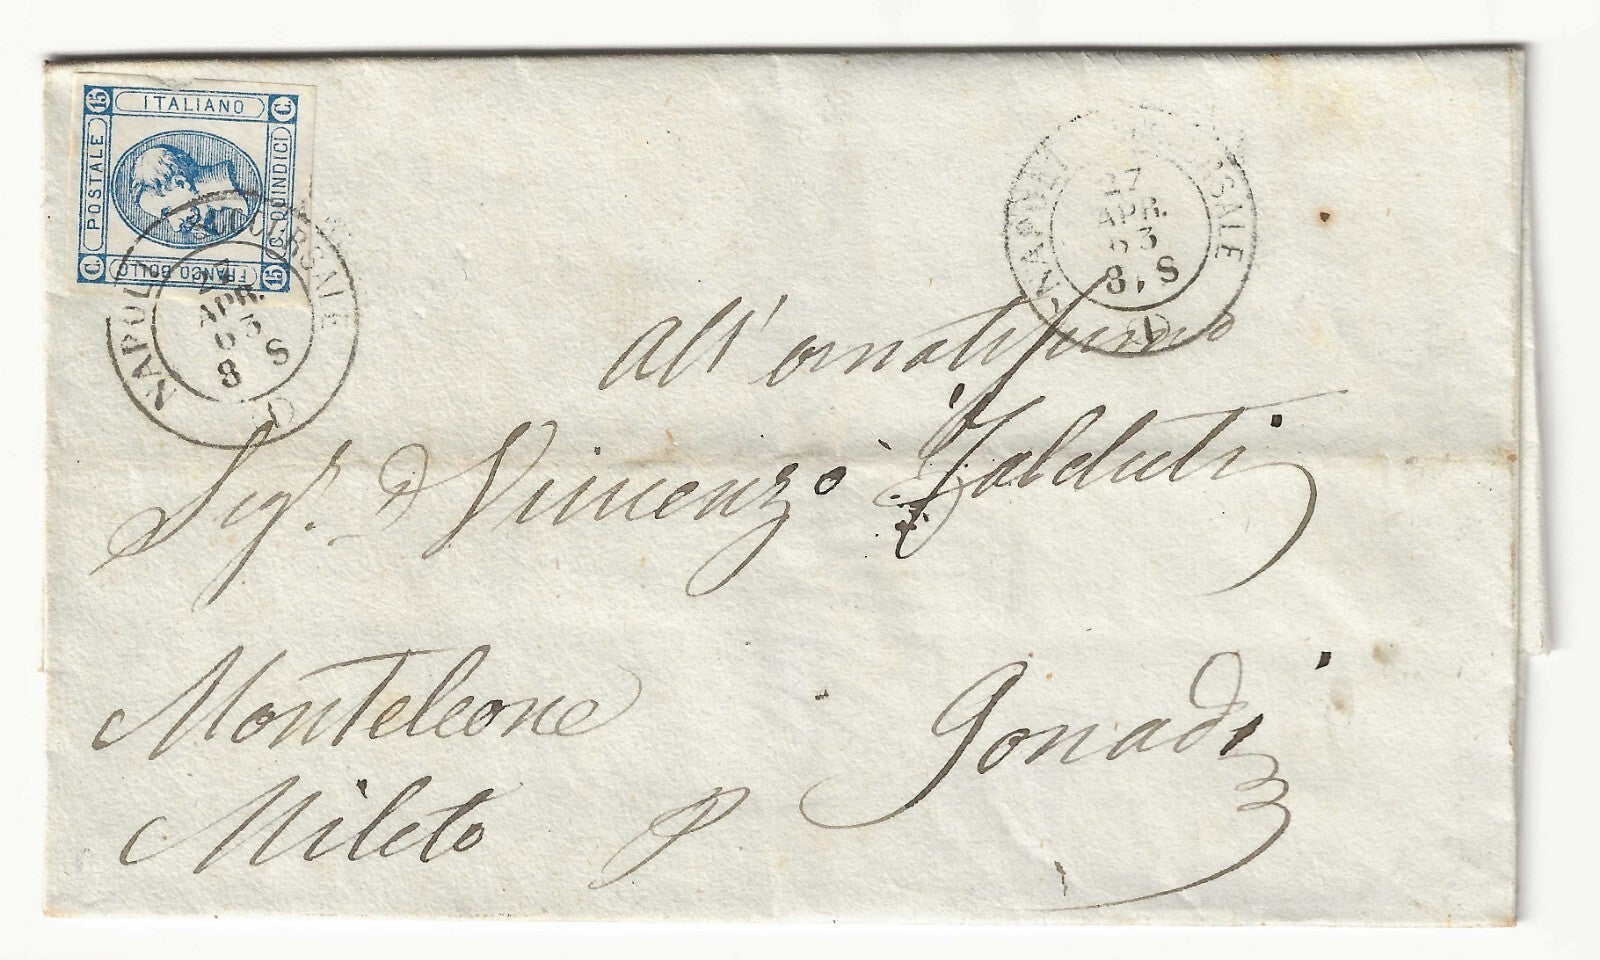 15 ITALIANO C.
POSTALE
C. QUINDICI
C. FRANCO BOLLO 15
NAPOLI SUCCURSALE
27
APR.
63
8 S
NAPOLI SUCCURSALE
27
APR.
63
8 S
All' ornatissimo
Sigr. D Vincenzo Talduti
Monteleone
Mileto p Jonadi